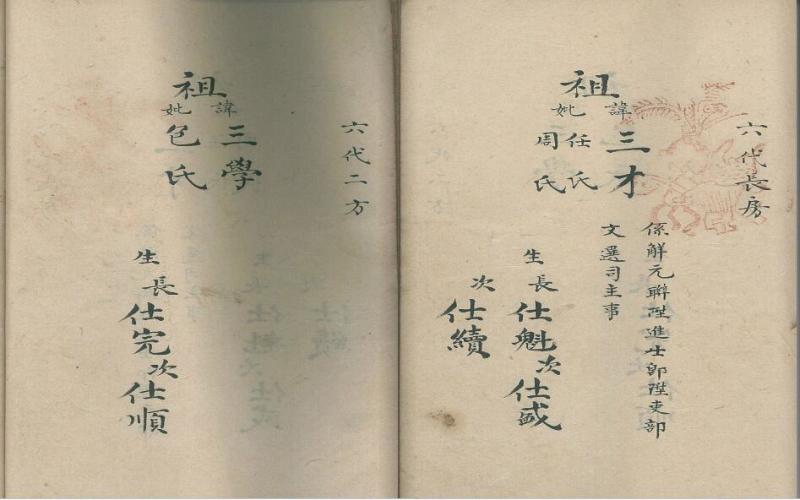 六代長房
祖
諱 三才
妣 任氏
周氏
係解元聯陞進士即陞吏部
文選司主事
生長仕魁次仕盛
次仕續
六代二方
祖
諱 三學
妣 包氏
生長仕完次仕順